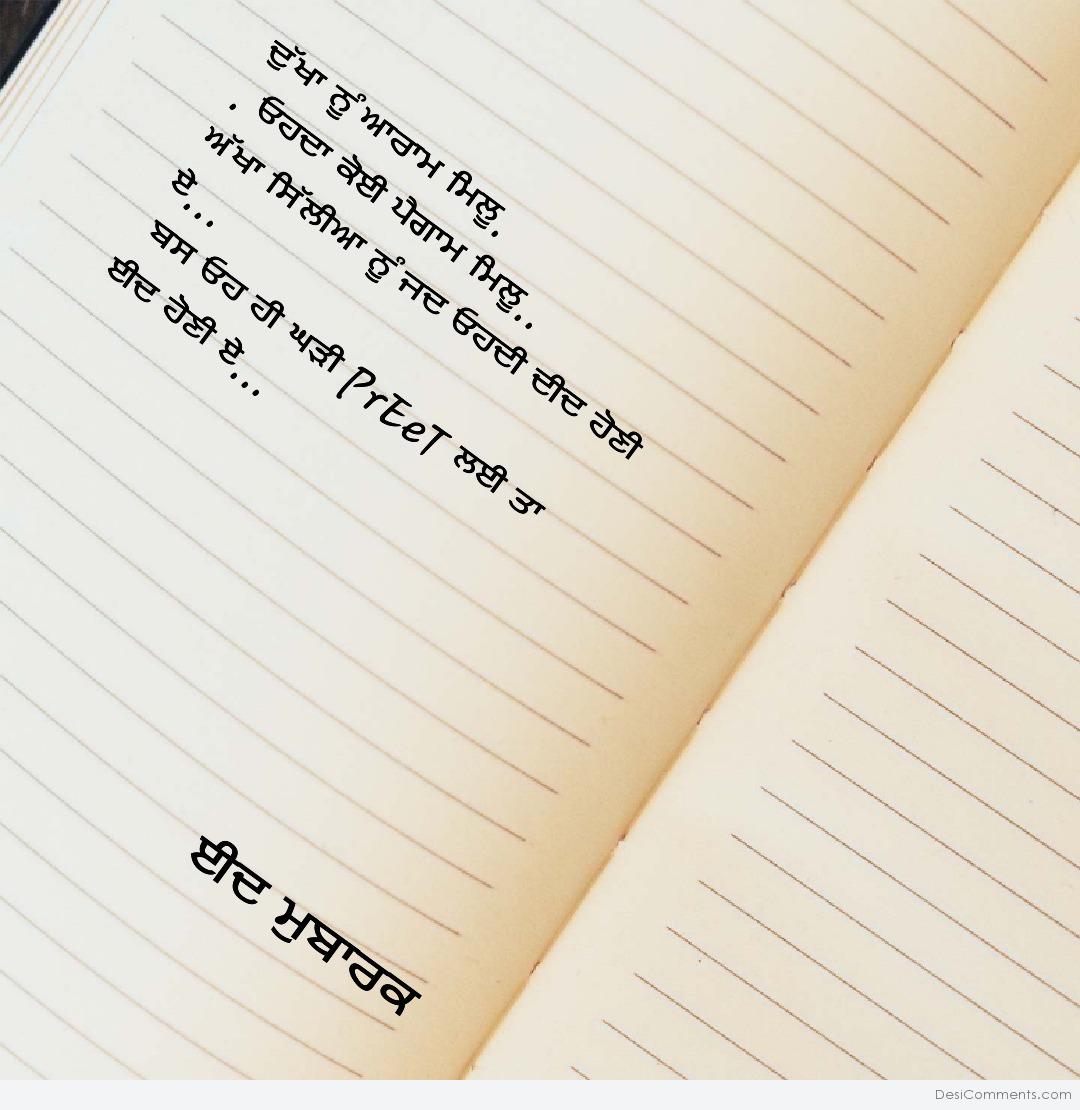 ਦੁੱਖਾ ਨੂੰ ਆਰਾਮ ਮਿਲੂ.
. ਓਹਦਾ ਕੋਈ ਪੈਗਾਮ ਮਿਲੂ..
ਅੱਖਾ ਸਿੱਲੀਆ ਨੂੰ ਜਦ ਓਹਦੀ ਦੀਦ ਹੋਣੀ
ਏ...
ਬਸ ਓਹ ਹੀ ਘੜੀ PrEeT ਲਈ ਤਾ
ਈਦ ਹੋਣੀ ਏ...
ਈਦ ਮੁਬਾਰਕ
DesiComments.com